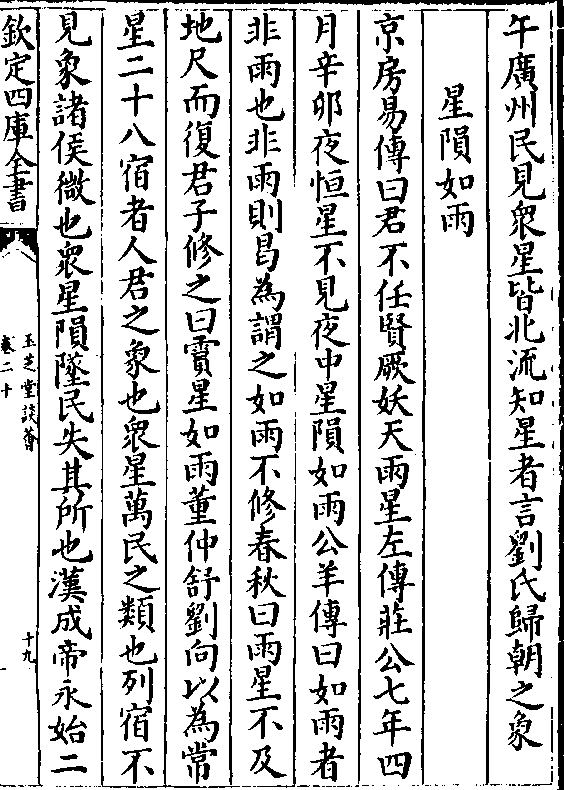 午廣州民見衆星皆北流知星者言劉氏歸朝之象
星隕如雨
京房易傳曰君不任賢厥妖天雨星左傳莊公七年四
月辛夘夜恒星不見夜中星隕如雨公羊傳曰如雨者
非雨也非雨則曷為謂之如雨不修春秋曰雨星不及
地尺而復君子修之曰霣星如雨董仲舒劉向以為常
星二十八宿者人君之象也衆星萬民之類也列宿不
見象諸侯微也衆星隕墜民失其所也漢成帝永始二
欽定四庫全書
玉芝堂談薈
卷二十
十九